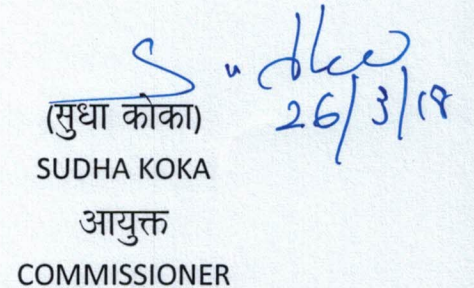 26/3/18
(सुधा कोका)
SUDHA KOKA
आयुक्त
COMMISSIONER